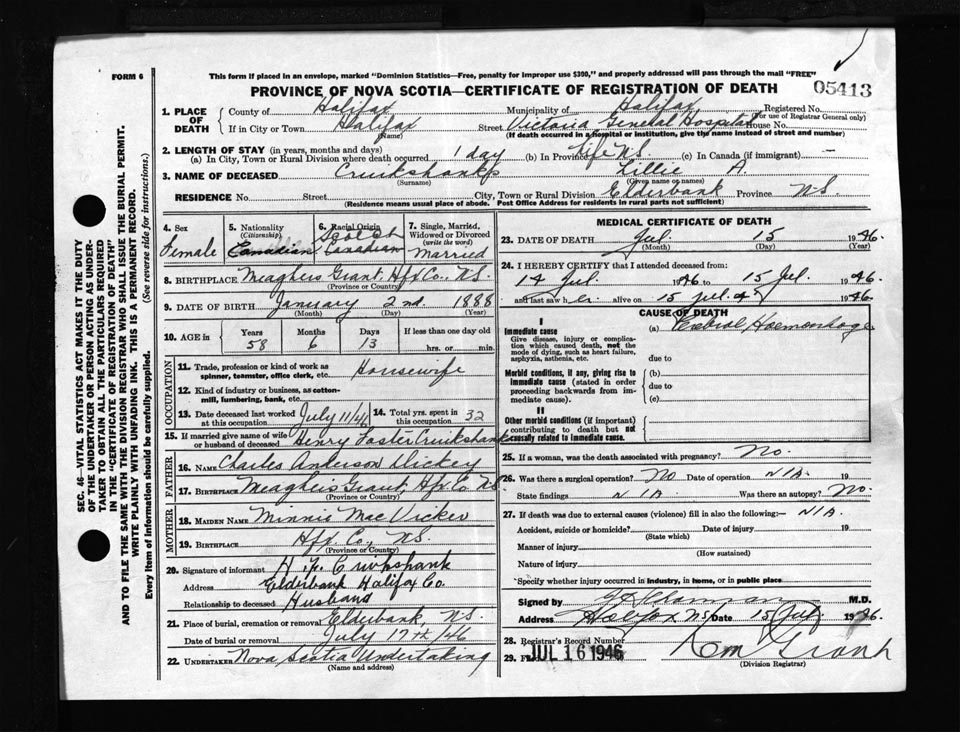 FORM 6
This form if placed in an envelope, marked "Dominion Statistics—Free, penalty for improper use $300," and properly addressed will pass through the mail "FREE"
PROVINCE OF NOVA SCOTIA—CERTIFICATE OF REGISTRATION OF DEATH
05413
1. PLACE OF DEATH County of Halifax Municipality of Halifax Registered No.
(For use of Registrar General only)
If in City or Town Halifax Street Victoria General Hospital House No.
(Name) (If death occurred in a hospital or institution, give the name instead of street and number)
2. LENGTH OF STAY (in years, months and days)
(a) In City, Town or Rural Division where death occurred 1 day (b) In Province Life N.S. (c) In Canada (if immigrant) —
3. NAME OF DECEASED Cruikshanks Lillie A.
(Surname) (Given name or names)
RESIDENCE No. Street City, Town or Rural Division Elderbank Province N.S.
(Residence means usual place of abode. Post Office Address for residents in rural parts not sufficient)
SEC. 46—VITAL STATISTICS ACT MAKES IT THE DUTY
OF THE UNDERTAKER OR PERSON ACTING AS UNDER-
TAKER TO OBTAIN ALL THE PARTICULARS REQUIRED
IN THE "CERTIFICATE OF REGISTRATION OF DEATH"
AND TO FILE THE SAME WITH THE DIVISION REGISTRAR WHO SHALL ISSUE THE BURIAL PERMIT.
WRITE PLAINLY WITH UNFADING INK. THIS IS A PERMANENT RECORD.
Every item of information should be carefully supplied. (See reverse side for instructions.)
4. Sex Female
5. Nationality (Citizenship) Canadian
6. Racial Origin Scotch Canadian
7. Single, Married, Widowed or Divorced (write the word) Married
8. BIRTHPLACE Meaghers Grant, Hfx Co., N.S.
(Province or Country)
9. DATE OF BIRTH January 2nd 1888
(Month) (Day) (Year)
10. AGE in Years Months Days If less than one day old
58 6 13 hrs. or min.
OCCUPATION
11. Trade, profession or kind of work as spinner, teamster, office clerk, etc. Housewife
12. Kind of industry or business, as cotton-mill, lumbering, bank, etc.
13. Date deceased last worked at this occupation July 11/46
14. Total yrs. spent in this occupation 32
15. If married give name of wife or husband of deceased Henry Foster Cruickshank
FATHER
16. NAME Charles Anderson Dickey
17. BIRTHPLACE Meaghers Grant, Hfx Co. N.S.
(Province or Country)
MOTHER
18. MAIDEN NAME Minnie MacVicker
19. BIRTHPLACE Hfx Co., N.S.
(Province or Country)
20. Signature of informant H. F. Cruikshank
Address Elderbank Halifax Co.
Relationship to deceased Husband
21. Place of burial, cremation or removal Elderbank, N.S.
Date of burial or removal July 17th/46
22. UNDERTAKER Nova Scotia Undertaking
(Name and address)
MEDICAL CERTIFICATE OF DEATH
23. DATE OF DEATH Jul. 15 1946.
(Month) (Day) (Year)
24. I HEREBY CERTIFY that I attended deceased from:
14 Jul. 1946 to 15 Jul. 1946.
and last saw her alive on 15 Jul. 1946.
CAUSE OF DEATH
I
Immediate cause
Give disease, injury or complication which caused death, not the mode of dying, such as heart failure, asphyxia, asthenia, etc.
(a) Cerebral Haemorrhage
due to
Morbid conditions, if any, giving rise to immediate cause (stated in order proceeding backwards from immediate cause).
(b)
due to
(c)
II
Other morbid conditions (if important) contributing to death but not causally related to immediate cause.
25. If a woman, was the death associated with pregnancy? No.
26. Was there a surgical operation? No Date of operation N/A. 19
State findings N/A Was there an autopsy? No.
27. If death was due to external causes (violence) fill in also the following:— N/A.
Accident, suicide or homicide? Date of injury 19
(State which)
Manner of injury
(How sustained)
Nature of injury
Specify whether injury occurred in industry, in home, or in public place
Signed by M.D.
Address Halifax N.S. Date 15 July 1946.
28. Registrar's Record Number
29. JUL 16 1946
(Division Registrar)